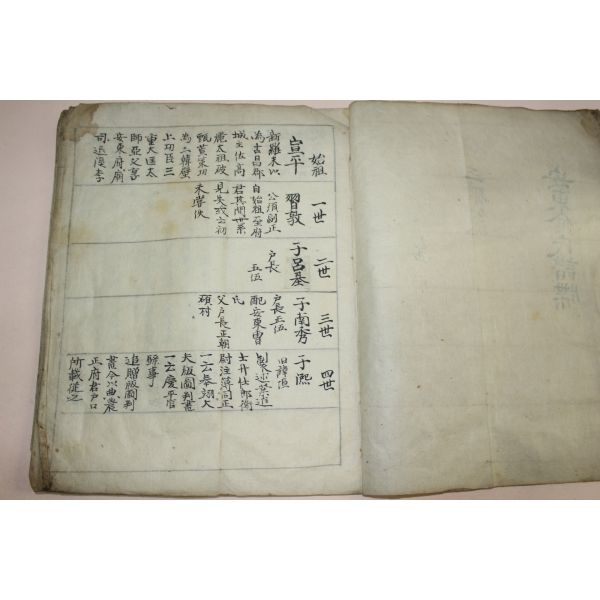 始祖
宣平
新羅末以
為古昌郡
城主佐高
麗太祖破
甄萱策功
為三韓壁
上功臣三
重大匡太
師亞父享
安東府廟
司退溪李
一世
習敦
公須副正
自始祖至府
君其間世系
見失或云初
未嘗佚
二世
子呂基
戶長
正位
三世
子南秀
戶長正位
配安東曹
氏
父戶長正朝
碩村
四世
子熙
旧諱恒
製述業進
士升仕郎衛
尉注簿同正
一云奉翊大
夫版圖判書
一云慶平官
縣事
追贈版圖判
書今以典農
正府君戶口
所載從之